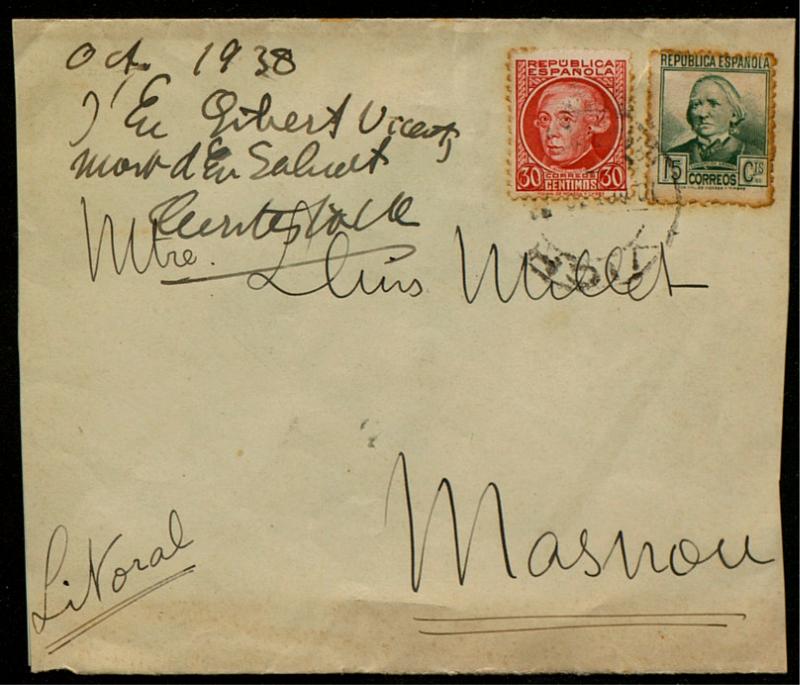 Oct. 1938
d'En Gibert Vicents
mort d'En Salvat
REPÚBLICA
ESPAÑOLA
30 CORREOS 30
CENTIMOS
REPÚBLICA ESPAÑOLA
15 CORREOS Cts
Mtre. Lluis Millet
Masnou
Litoral